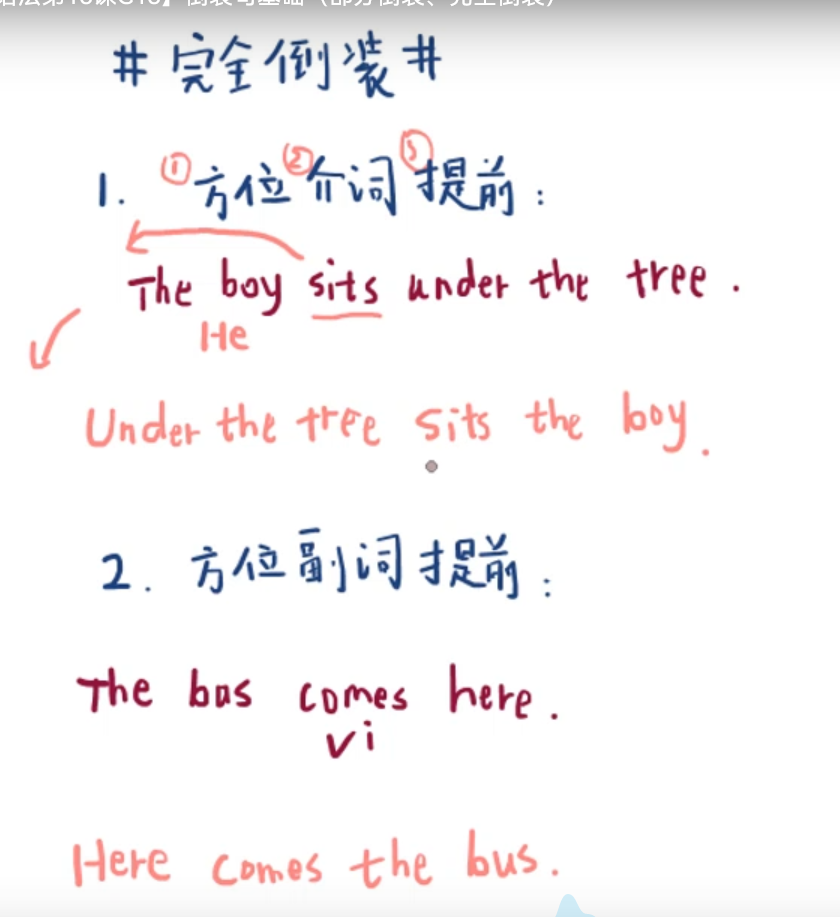 倒装句基础（部分倒装、完全倒装）
# 完全倒装 #
1. ①方位②介词③提前：
The boy sits under the tree.
He
Under the tree sits the boy.
2. 方位副词提前：
The bus comes here.
vi
Here comes the bus.